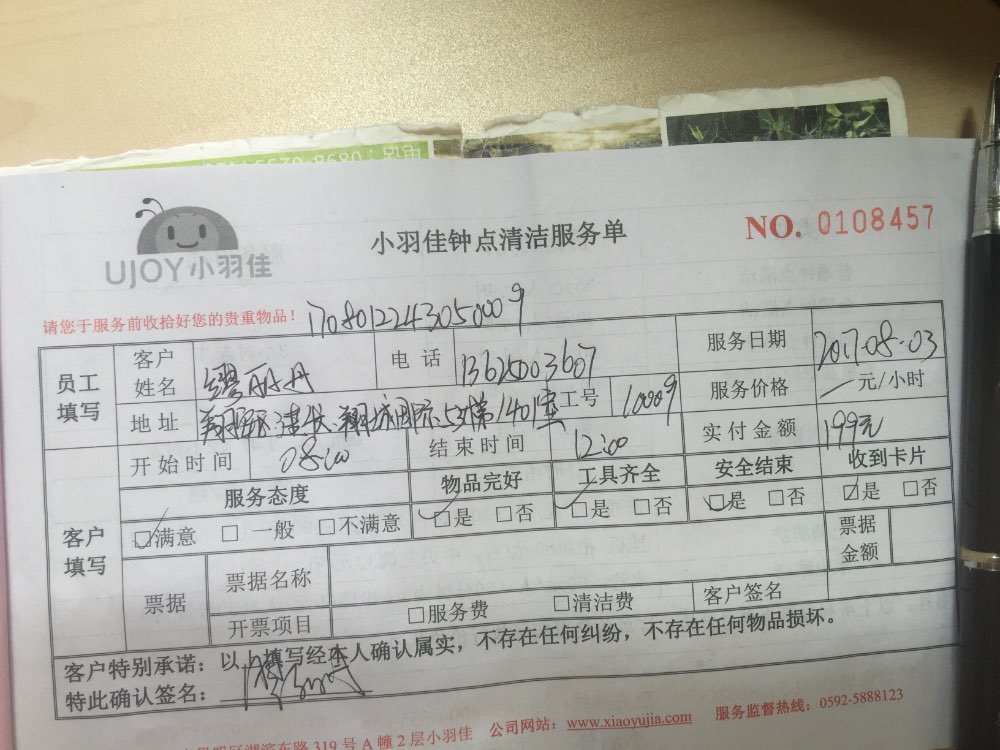 UJOY小羽佳
小羽佳钟点清洁服务单
NO. 0108457
请您于服务前收拾好您的贵重物品！
1708012243050009
员工填写
客户姓名
丽丹
电话
13625003607
服务日期
2017.08.03
地址
翔城国际53梯1401室
工号
10009
服务价格
元/小时
客户填写
开始时间
08:00
结束时间
12:00
实付金额
199元
服务态度
物品完好
工具齐全
安全结束
收到卡片
☑满意 □一般 □不满意
☑是 □否
☑是 □否
☑是 □否
☑是 □否
票据
票据名称
票据金额
开票项目
□服务费 □清洁费
客户签名
客户特别承诺：以上填写经本人确认属实，不存在任何纠纷，不存在任何物品损坏。
特此确认签名：
明区湖滨东路319号A幢2层小羽佳 公司网站：www.xiaoyujia.com 服务监督热线：0592-5888123